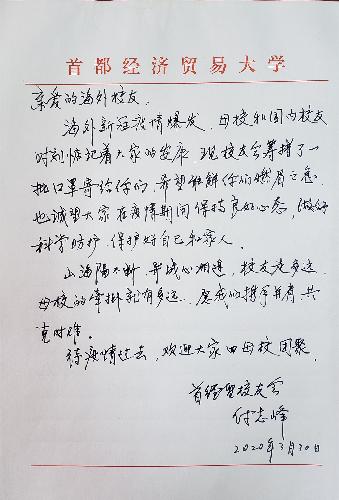 首都经济贸易大学
亲爱的海外校友：
海外新冠疫情爆发，母校和国内校友
时刻惦记着大家的安康。现校友会筹措了一
批口罩寄给你们，希望能解你们的燃眉之急。
也诚望大家在疫情期间保持良好心态，做好
科学防护，保护好自己和家人。
山海隔不断，并成心相连，校友走多远，
母校的牵挂就有多远。愿我们携手并肩 共
克时难。
待疫情过去，欢迎大家回母校团聚。
首经贸校友会
付志峰
2020年3月30日